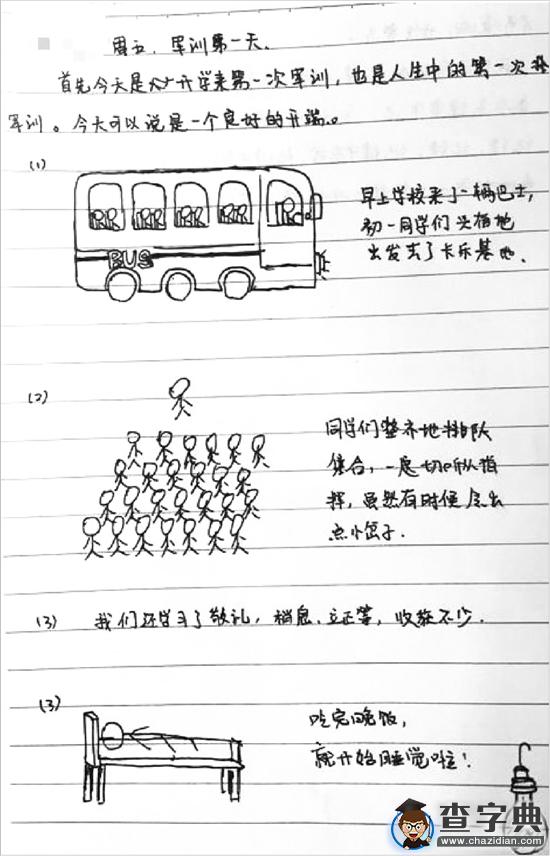 周五,军训第一天。
首先今天是 开学来第一次军训,也是人生中的第一次
军训。今天可以说是一个良好的开端。
(1)
早上学校来了一辆巴士,
初一同学们 地
出发去了卡乐基地.
BUS
(2)
同学们整齐地排队
集合,一 切听从指
挥,虽然有时候会出
点小岔子.
(3) 我们还学习了敬礼,稍息.立正等,收获不少.
(3)
吃完晚饭,
就开始睡觉啦!
查字典
www.chazidian.com